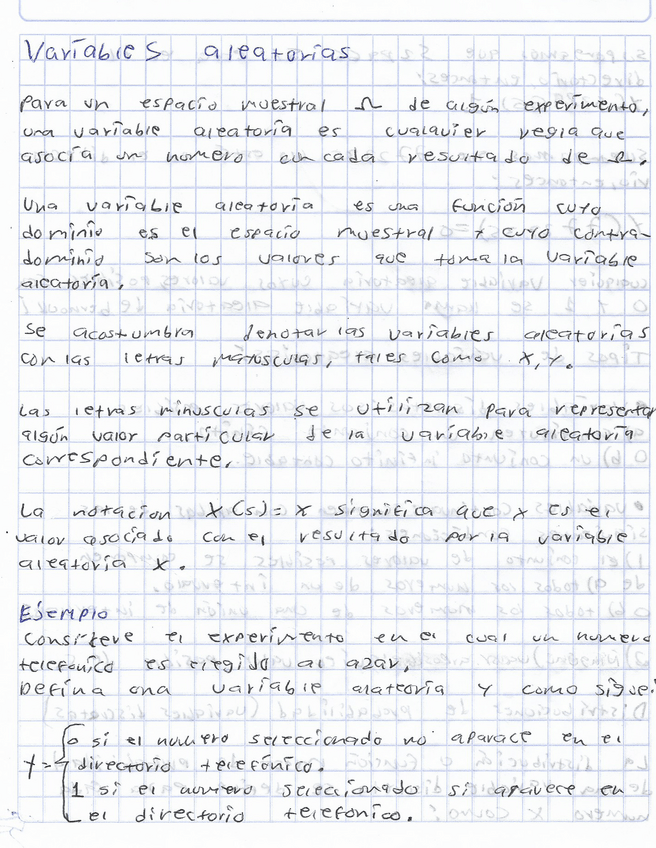 Variables aleatorias
Para un espacio muestral Ω de algún experimento,
una variable aleatoria es cualquier regla que
asocia un numero con cada resultado de Ω.
Una variable aleatoria es una función cuyo
dominio es el espacio muestral y cuyo contra-
dominio son los valores que toma la variable
aleatoria.
Se acostumbra denotar las variables aleatorias
con las letras mayusculas, tales como X, Y.
Las letras minusculas se utilizan para representar
algún valor particular de la variable aleatoria
correspondiente.
La notacion X(s) = x significa que x es el
valor asociado con el resultado por la variable
aleatoria X.
Ejemplo
Considere el experimento en el cual un numero
telefonico es elegido al azar,
Defina una variable alateoria Y como sigue:
Y = { 0 si el numero seleccionado no aparace en el
directorio telefónico.
1 si el numero seleccionado si aparece en
el directorio telefonico.